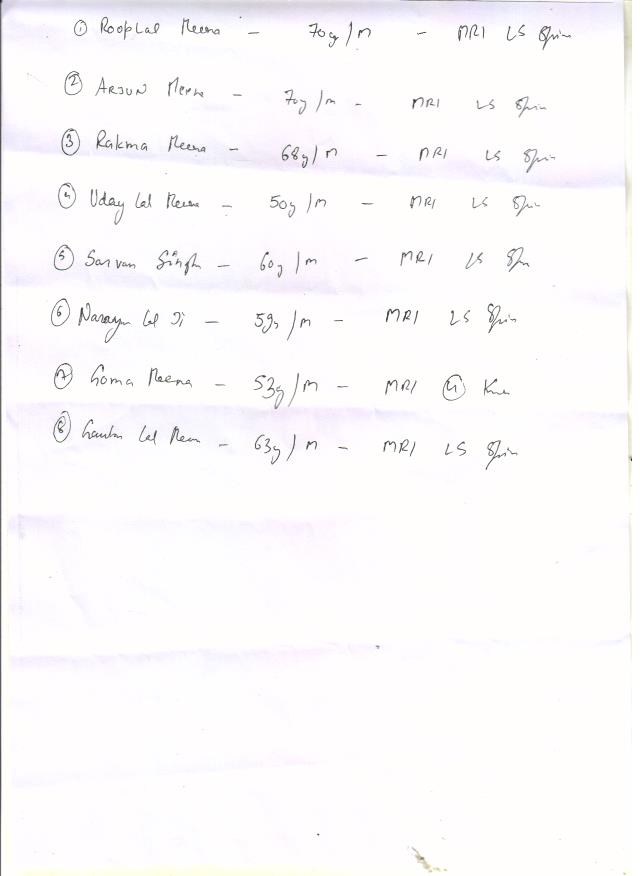 ① Rooplal Meena - 70y/m - MRI LS Spin
② ARJUN Meena - 70y/m - MRI LS Spin
③ Rakma Meena - 68y/m - MRI LS Spin
④ Uday Lal Meena - 50y/m - MRI LS Spin
⑤ Sarvan Singh - 60y/m - MRI LS Spin
⑥ Narayan Lal Ji - 59y/m - MRI LS Spin
⑦ Goma Meena - 53y/m - MRI Knee
⑧ Lal Meena - 63y/m - MRI LS Spin